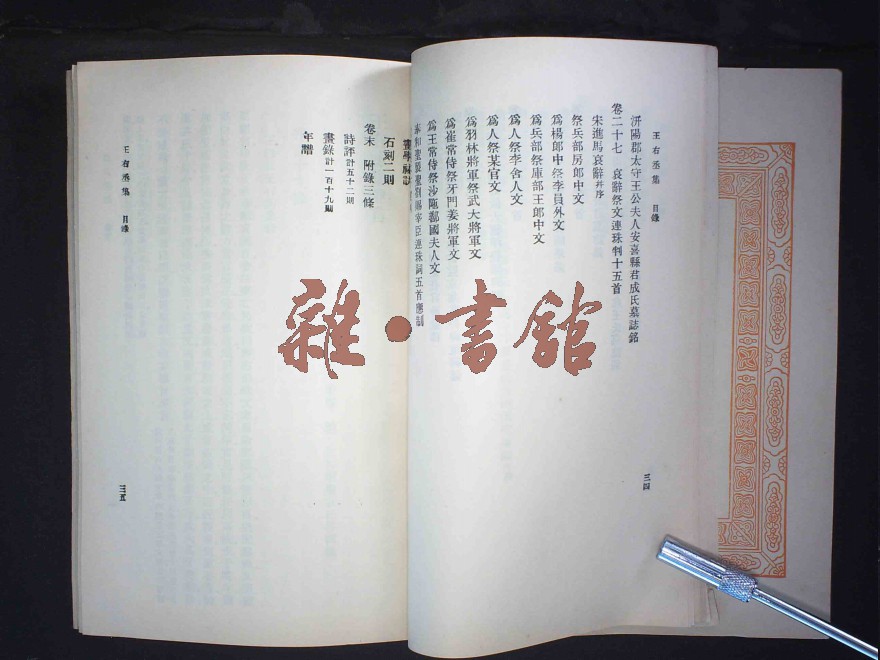 王右丞集 目錄
洴陽郡太守王公夫人安喜縣君成氏墓誌銘
卷二十七 哀辭祭文連珠判十五首
宋進馬哀辭并序
祭兵部房郎中文
爲楊郎中祭李員外文
爲兵部祭庫部王郎中文
爲人祭李舍人文
爲人祭某官文
爲羽林將軍祭武大將軍文
爲崔常侍祭牙門姜將軍文
爲王常侍祭沙陁鄯國夫人文
聖躬剋賜宰臣連珠詞五首應制
三四
畫學祕訣
石刻二則
卷末 附錄三條
詩評計五十二則
畫錄計一百十九則
年譜
王右丞集 目錄
三五
雜·書館